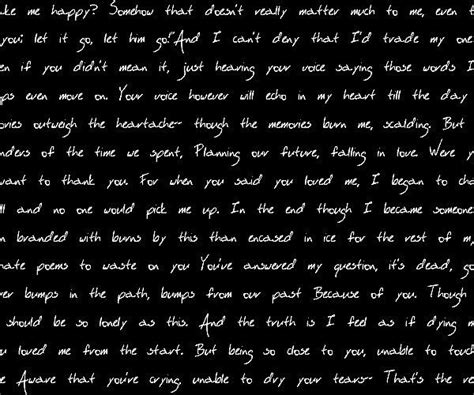 ake me happy? Somehow that doesn't really matter much to me, even
you; let it go, let him go."And I can't deny that I'd trade my one
en if you didn't mean it, just hearing your voice saying those words I
ps even move on. Your voice however will echo in my heart till the day
ories outweigh the heartache~ though the memories burn me, scalding. But
nders of the time we spent, Planning our future, falling in love. Were y
want to thank you. For when you said you loved me, I began to cha
ll and no one would pick me up. In the end though I became someone
n branded with burns by this than encased in ice for the rest of m
nate poems to waste on you You've answered my question, it's dead, go
er bumps in the path, bumps from our past Because of you. Though
should be so lonely as this. And the truth is I feel as if dying m
u loved me from the start. But being so close to you, unable to touch
e Aware that you're crying, unable to dry your tears~ That's the rev